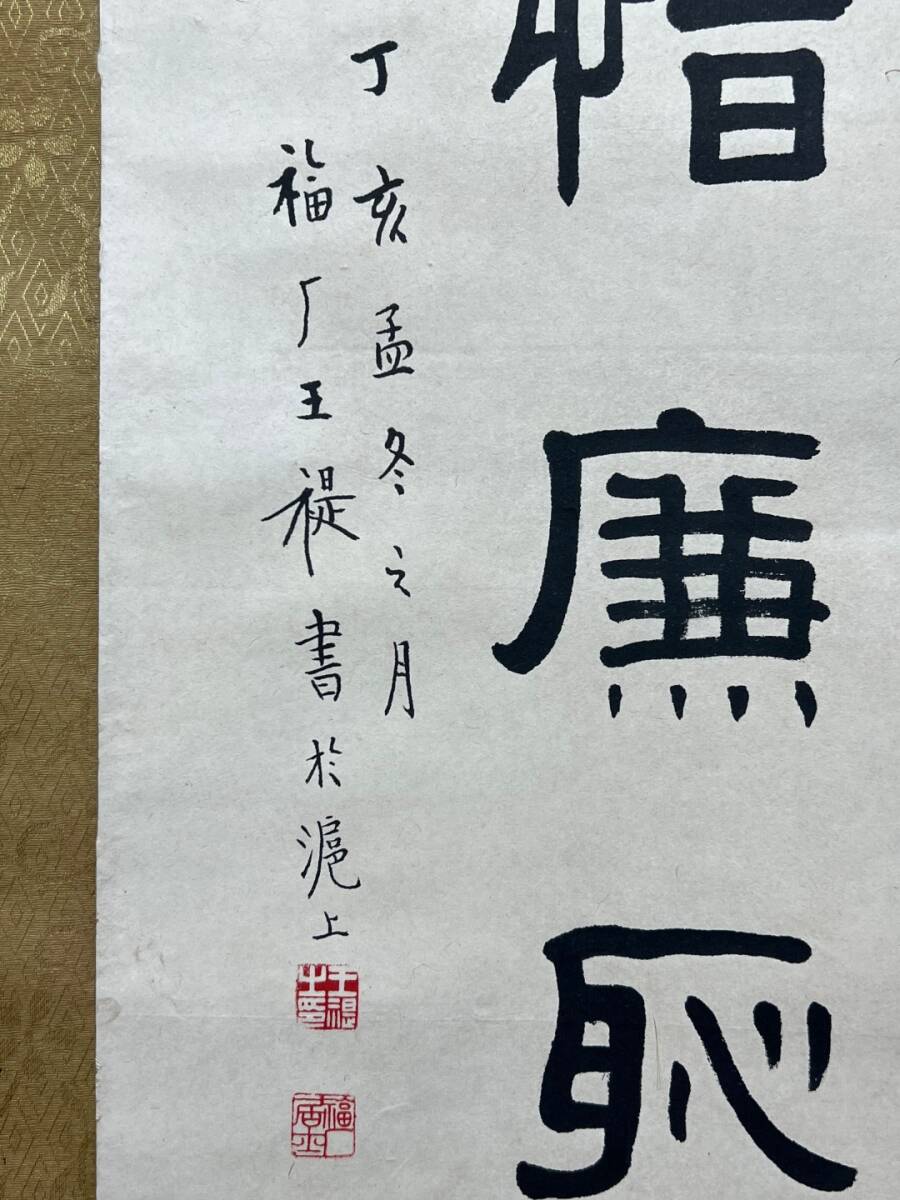 惜廉恥
丁亥孟冬之月
福厂王禔書於滬上
王禔之印
福厂